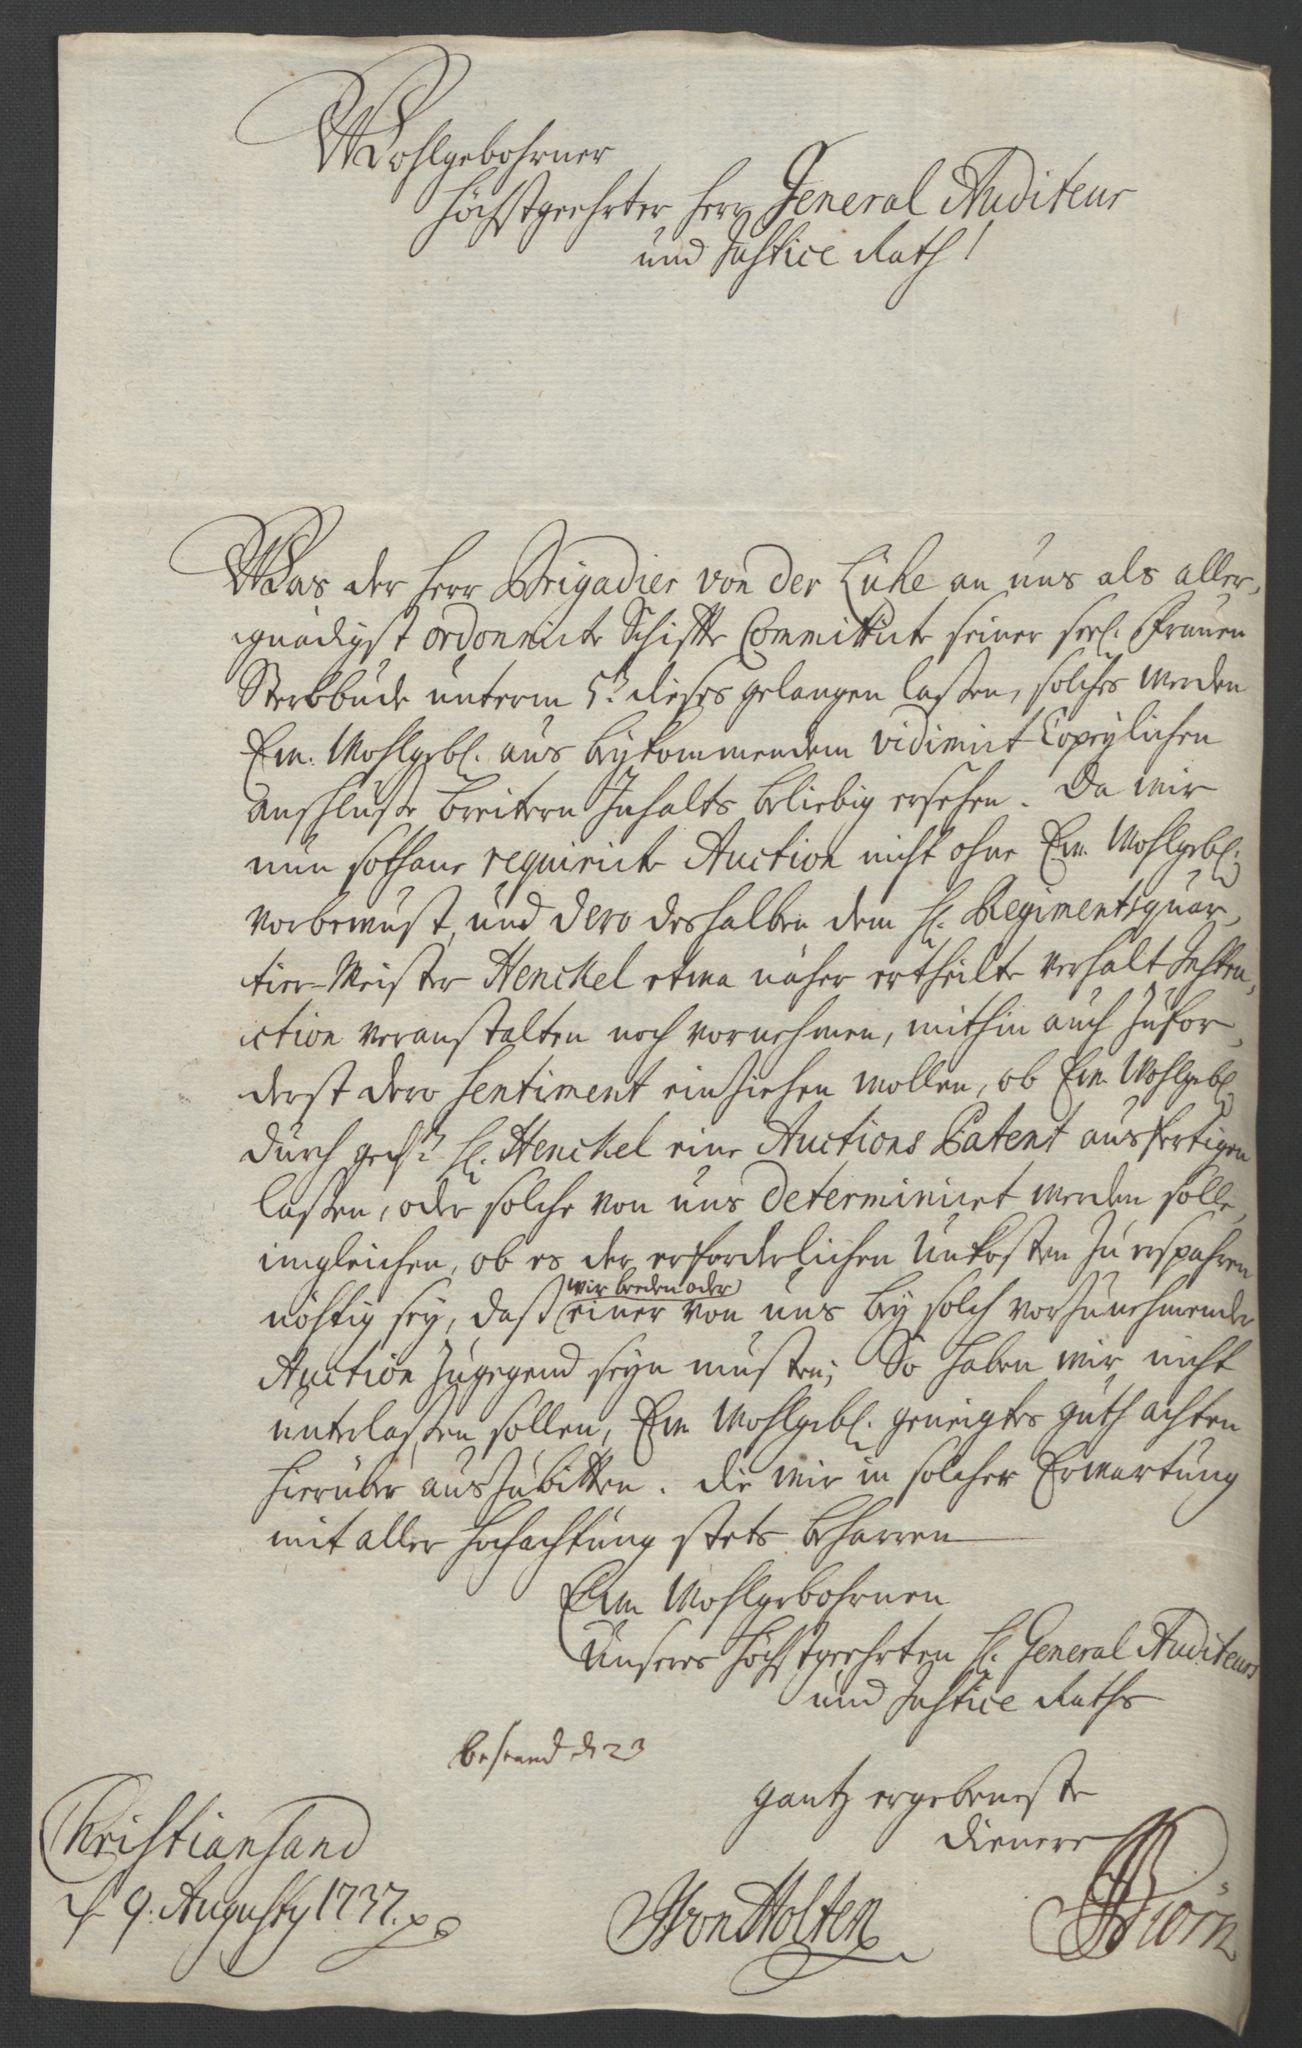 Wohlgebohrner
Höchstgeehrter Herr General Auditeur
und Justice Rath!
Was der Herr Brigadier von der Lühe an uns als aller,
gnädigst ordonnirte Schiffte Committirte seiner seel. Frauen
Sterbbude unterm 5t. dieses gelangen laßen, solches werden
Ew. Wohlgebl. aus beykommendem vidimirt Copeylichen
Anschluße breitern Inhalts beliebig ersehen. Da wir
nun sothane requirirte Auction nicht ohne Ew. Wohlgebl.
vorbewust, und dero deshalben dem H. Regimentsquar,
tier-Meister Henckel etwa näher ertheilte Verhalt Instru,
ction veranstalten noch vornehmen, mithin auch zufor,
derst dero Sentiment einziehen wollen, ob Ew. Wohlgebl.
durch gedt. H. Henckel eine Auctions Patent ausfertigen
laßen, oder solche von uns determiniret werden solle,
imgleichen, ob es der erforderlichen Unkosten zu erspahren
nöhtig sey, daß einer von uns bey solch vorzunehmender
wir beeden oder
Auction zugegend seyn musten; So haben wir nicht
unterlaßen sollen, Ew. Wohlgebl. geneigtes guth achten
hierüber auszubitten. die wir in solcher Erwartung
mit aller Hochachtung stets beharren
Ew. Wohlgebohrnen
Unseres Höchstgeehrten H. General Auditeurs
und Justice Raths
besvared d 23
gantz ergebenste
Dienere
Christiansand
d 9. Augusty 1737.
von Holten
Biörn